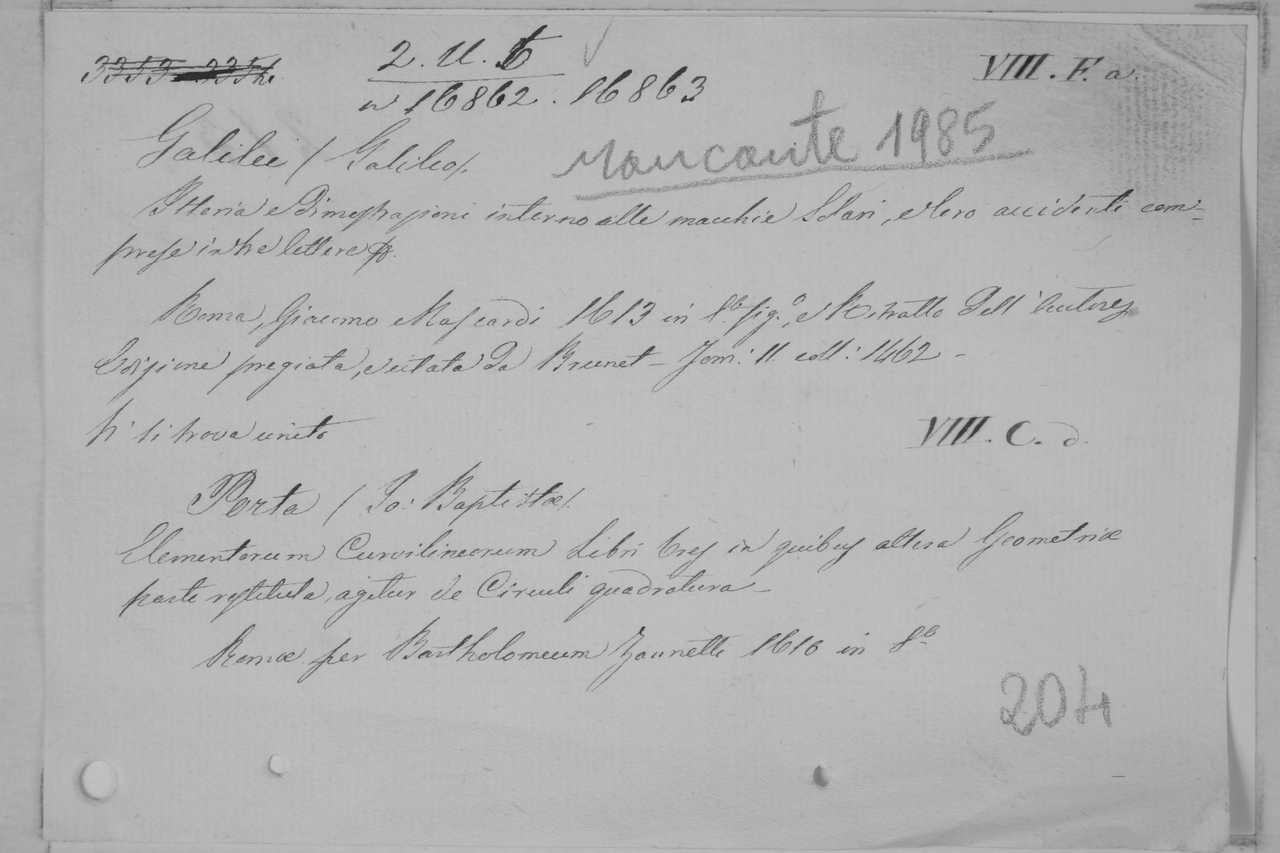 3353-3354.
2. U. 6
VIII. F. a.
n 16862. 16863
Galilei / Galileo/.
mancante 1985
Istoria e Dimostrazioni intorno alle macchie Solari, e loro accidenti com-
prese in tre lettere
Roma, Giacomo Mascardi 1613 in 8.º fig.º, e Ritratto dell'Autore
Edizione pregiata, e citata da Brunet - Tom: II. coll: 1462 -
Vi si trova unito
VIII. C. d.
Porta / Io: Baptistæ/.
Elementorum Curvilineorum Libri tres in quibus altera Geometriæ
parte restituta, agitur de Circuli quadratura -
Romæ per Bartholomeum Zannetti 1610 in 8.º
204